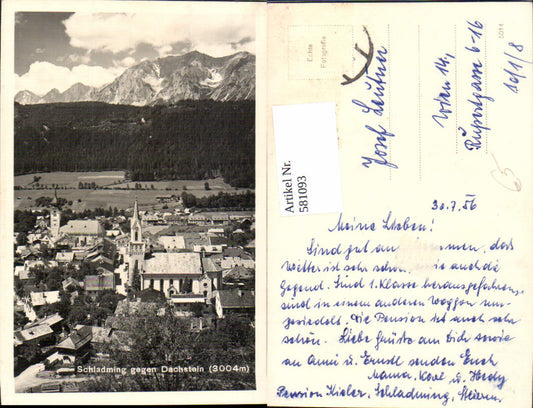 Schladming gegen Dachstein (3004m)
Echte
Fotografie
5014
Josef Leutner
Wien 14,
Rupertgasse 6-16
10/1/8
65
Artikel Nr.
581093
30.7.56
Meine Lieben!
Sind gut an men, das
Wetter ist sehr schön, wie auch die
Gegend. Sind 1. Klasse herausgefahren,
sind in einem anderen Waggon um-
gesiedelt. Die Pension ist auch sehr
schön. Liebe Grüße an Dich sowie
an Anni u. Ernstl senden Euch
Mama, Karl u. Hedy
Pension Kieler, Schladming, Steierm.